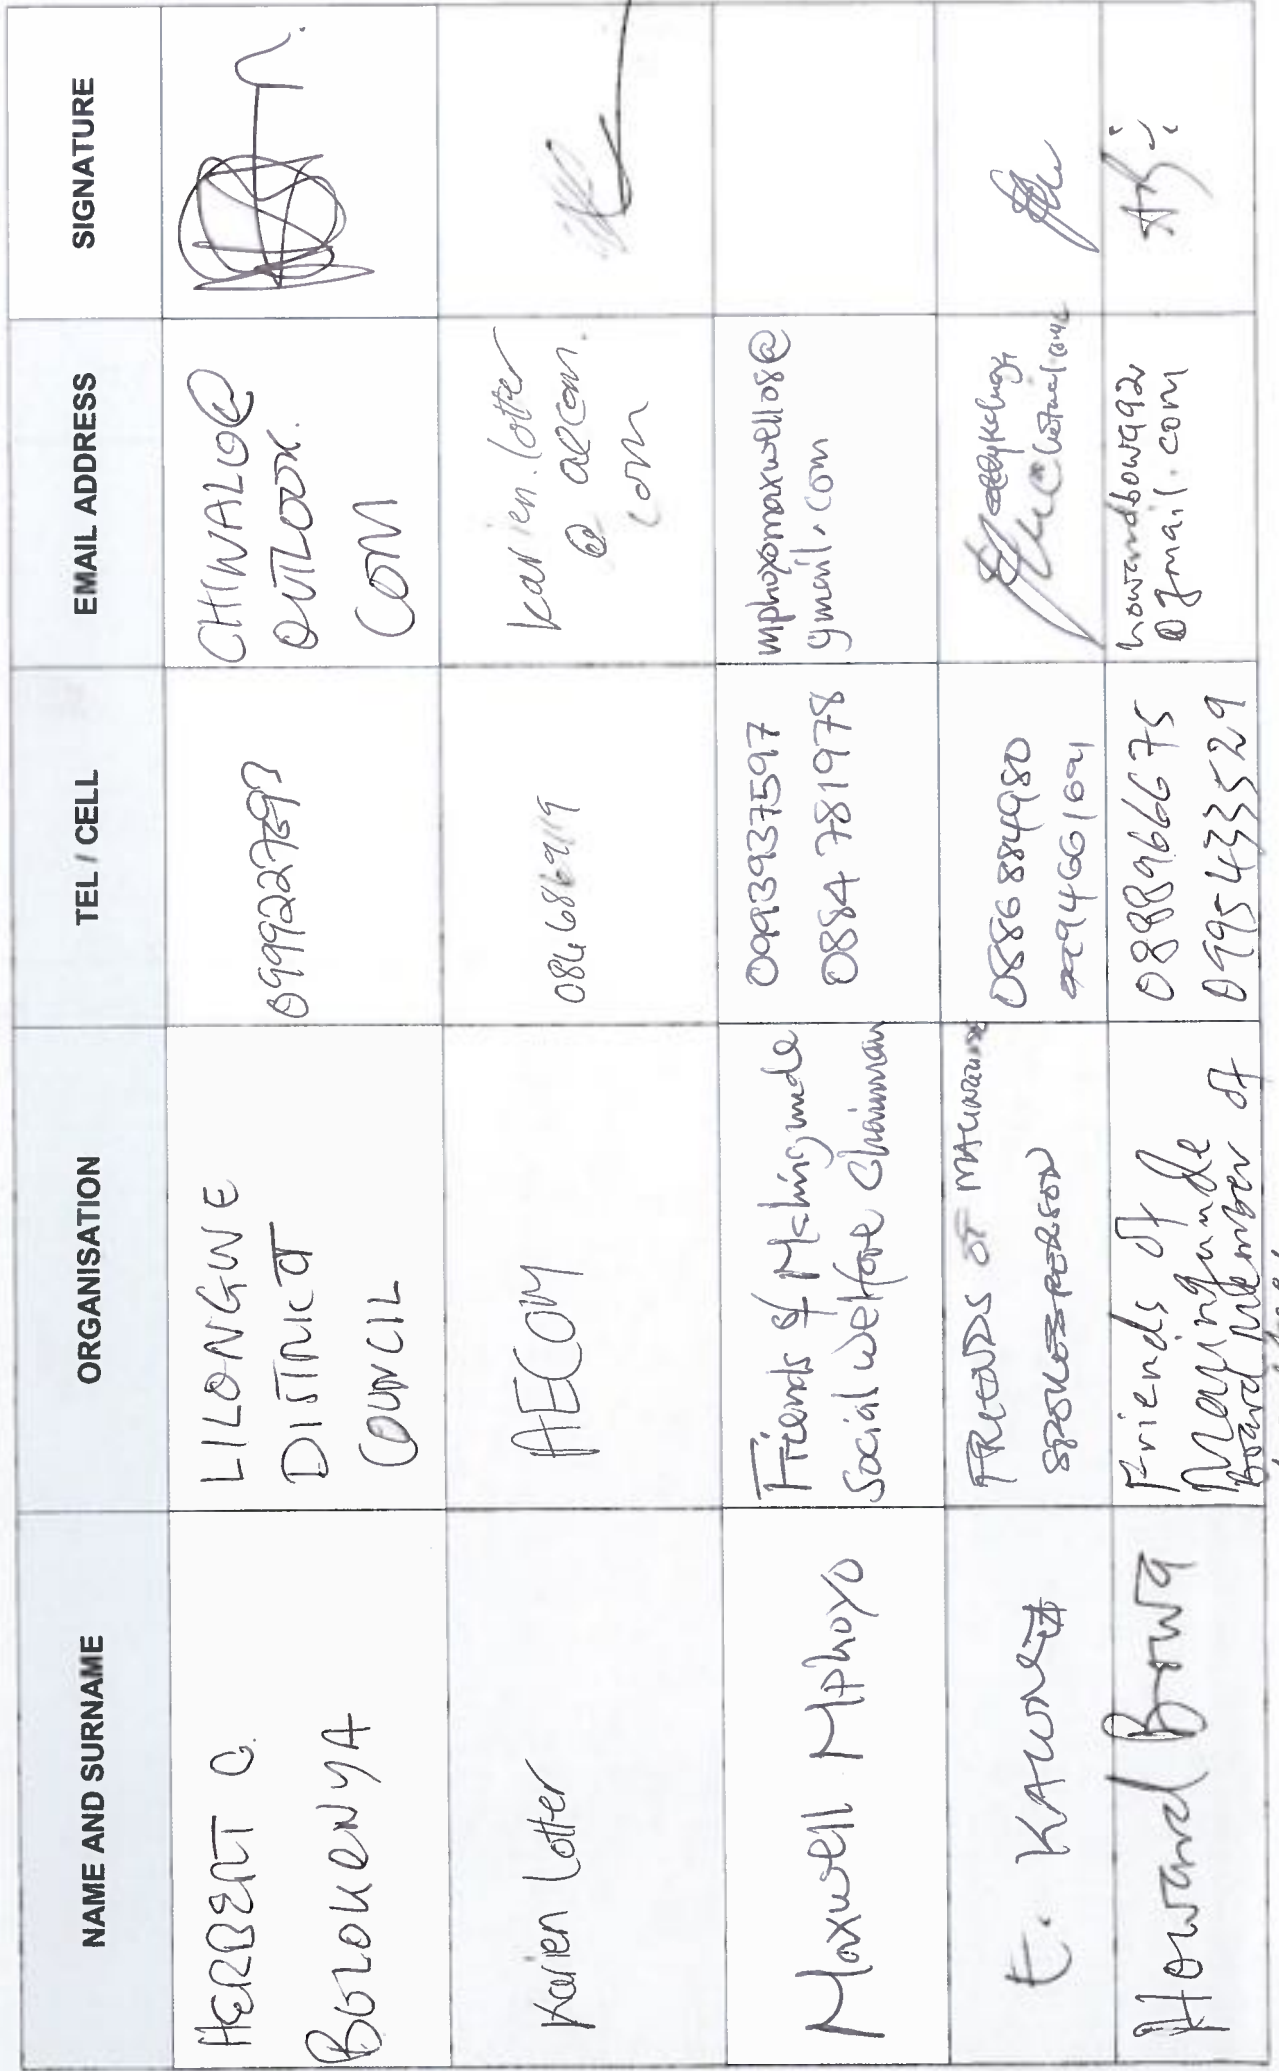 NAME AND SURNAME
ORGANISATION
TEL / CELL
EMAIL ADDRESS
SIGNATURE
HERBERT C.
BOLOKENYA
LILONGWE
DISTRICT
COUNCIL
CHIWALO@
OUTLOOK.
COM
Karien Lotter
AECOM
karien.lotter
@ aecom.
com
Maxwell Mphoyo
Friends of Malingunde
Social welfare Chairman
0993937597
0884 781978
mphoyomaxwell08@
gmail.com
E.
FRIENDS OF
SPOKESPERSON
0886884980
Howard Bowa
Friends of
Malingunde
Board Member of
0888966675
0995433529
howardbowa92
@gmail.com